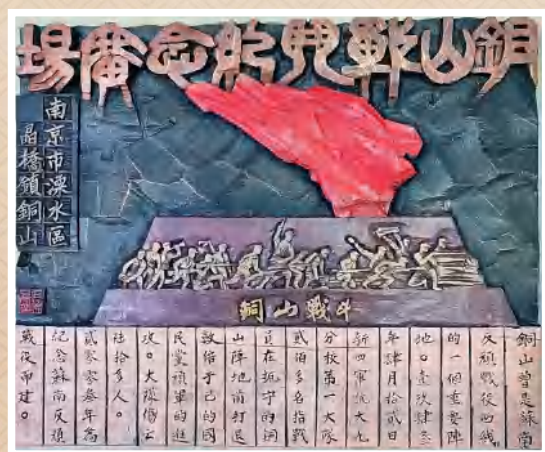 銅山戰鬥紀念廣場
南京市溧水區
晶橋鎮銅山
銅山戰斗
銅山曾是蘇南
反頑戰役西綫
的一個重要陣
地。壹玖肆叁
年肆月拾貳日
新四軍抗大九
分校第一大隊
貳佰多名指戰
員在扼守的銅
山陣地前打退
數倍于己的國
民黨頑軍的進
攻。大隊傷亡
陸拾多人。
貳零零叁年爲
紀念蘇南反頑
戰役而建。